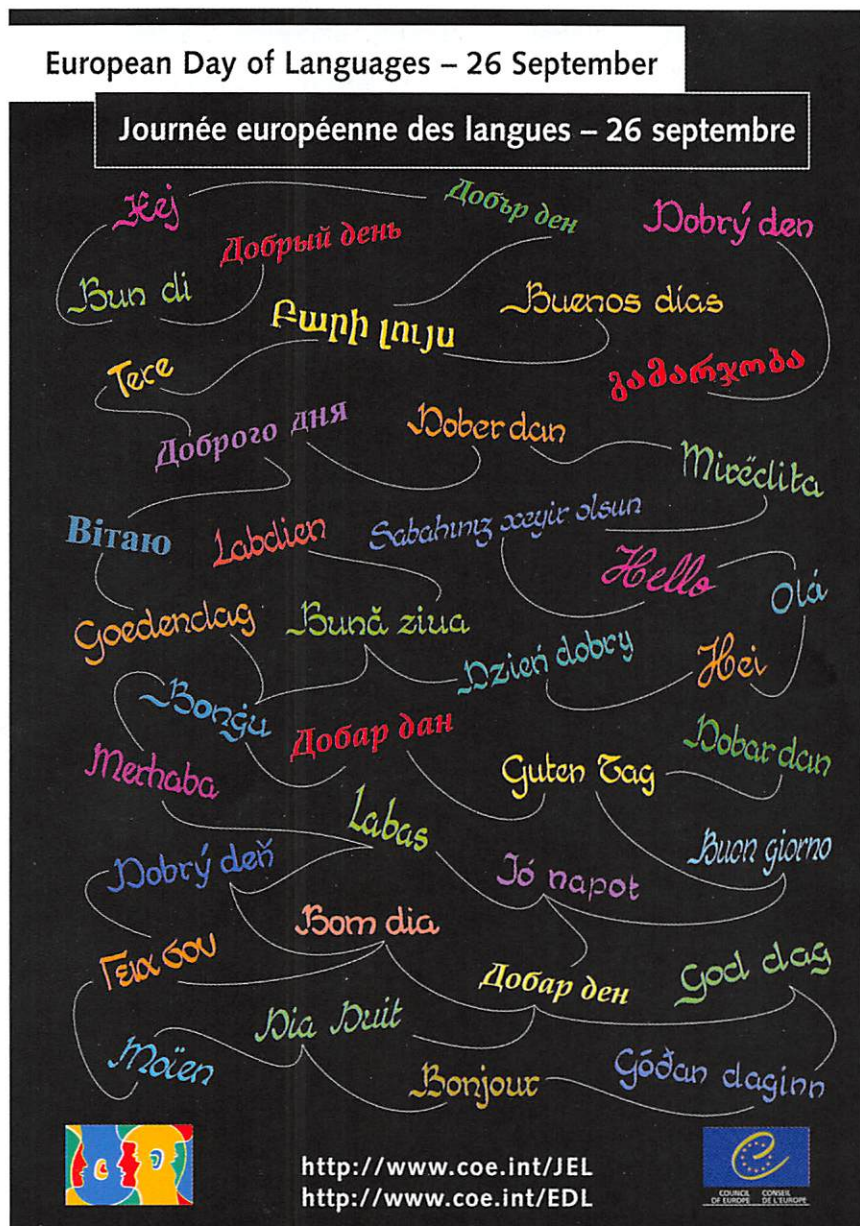 European Day of Languages – 26 September
Journée européenne des langues – 26 septembre
Hej
Добър ден
Dobrý den
Добрый день
Bun di
Buenos días
Բարի լույս
Tere
გამარჯობა
Доброго дня
Dober dan
Mirëdita
Вiтаю
Labdien
Sabahınız xeyir olsun
Hello
Olá
Goedendag
Bună ziua
Dzień dobry
Hei
Bonġu
Добар дан
Dobar dan
Merhaba
Guten Tag
Labas
Buon giorno
Dobrý deň
Jó napot
Bom dia
Γεια σου
Добар ден
God dag
Dia Duit
Moïen
Bonjour
Góðan daginn
http://www.coe.int/JEL
http://www.coe.int/EDL
COUNCIL OF EUROPE
CONSEIL DE L'EUROPE